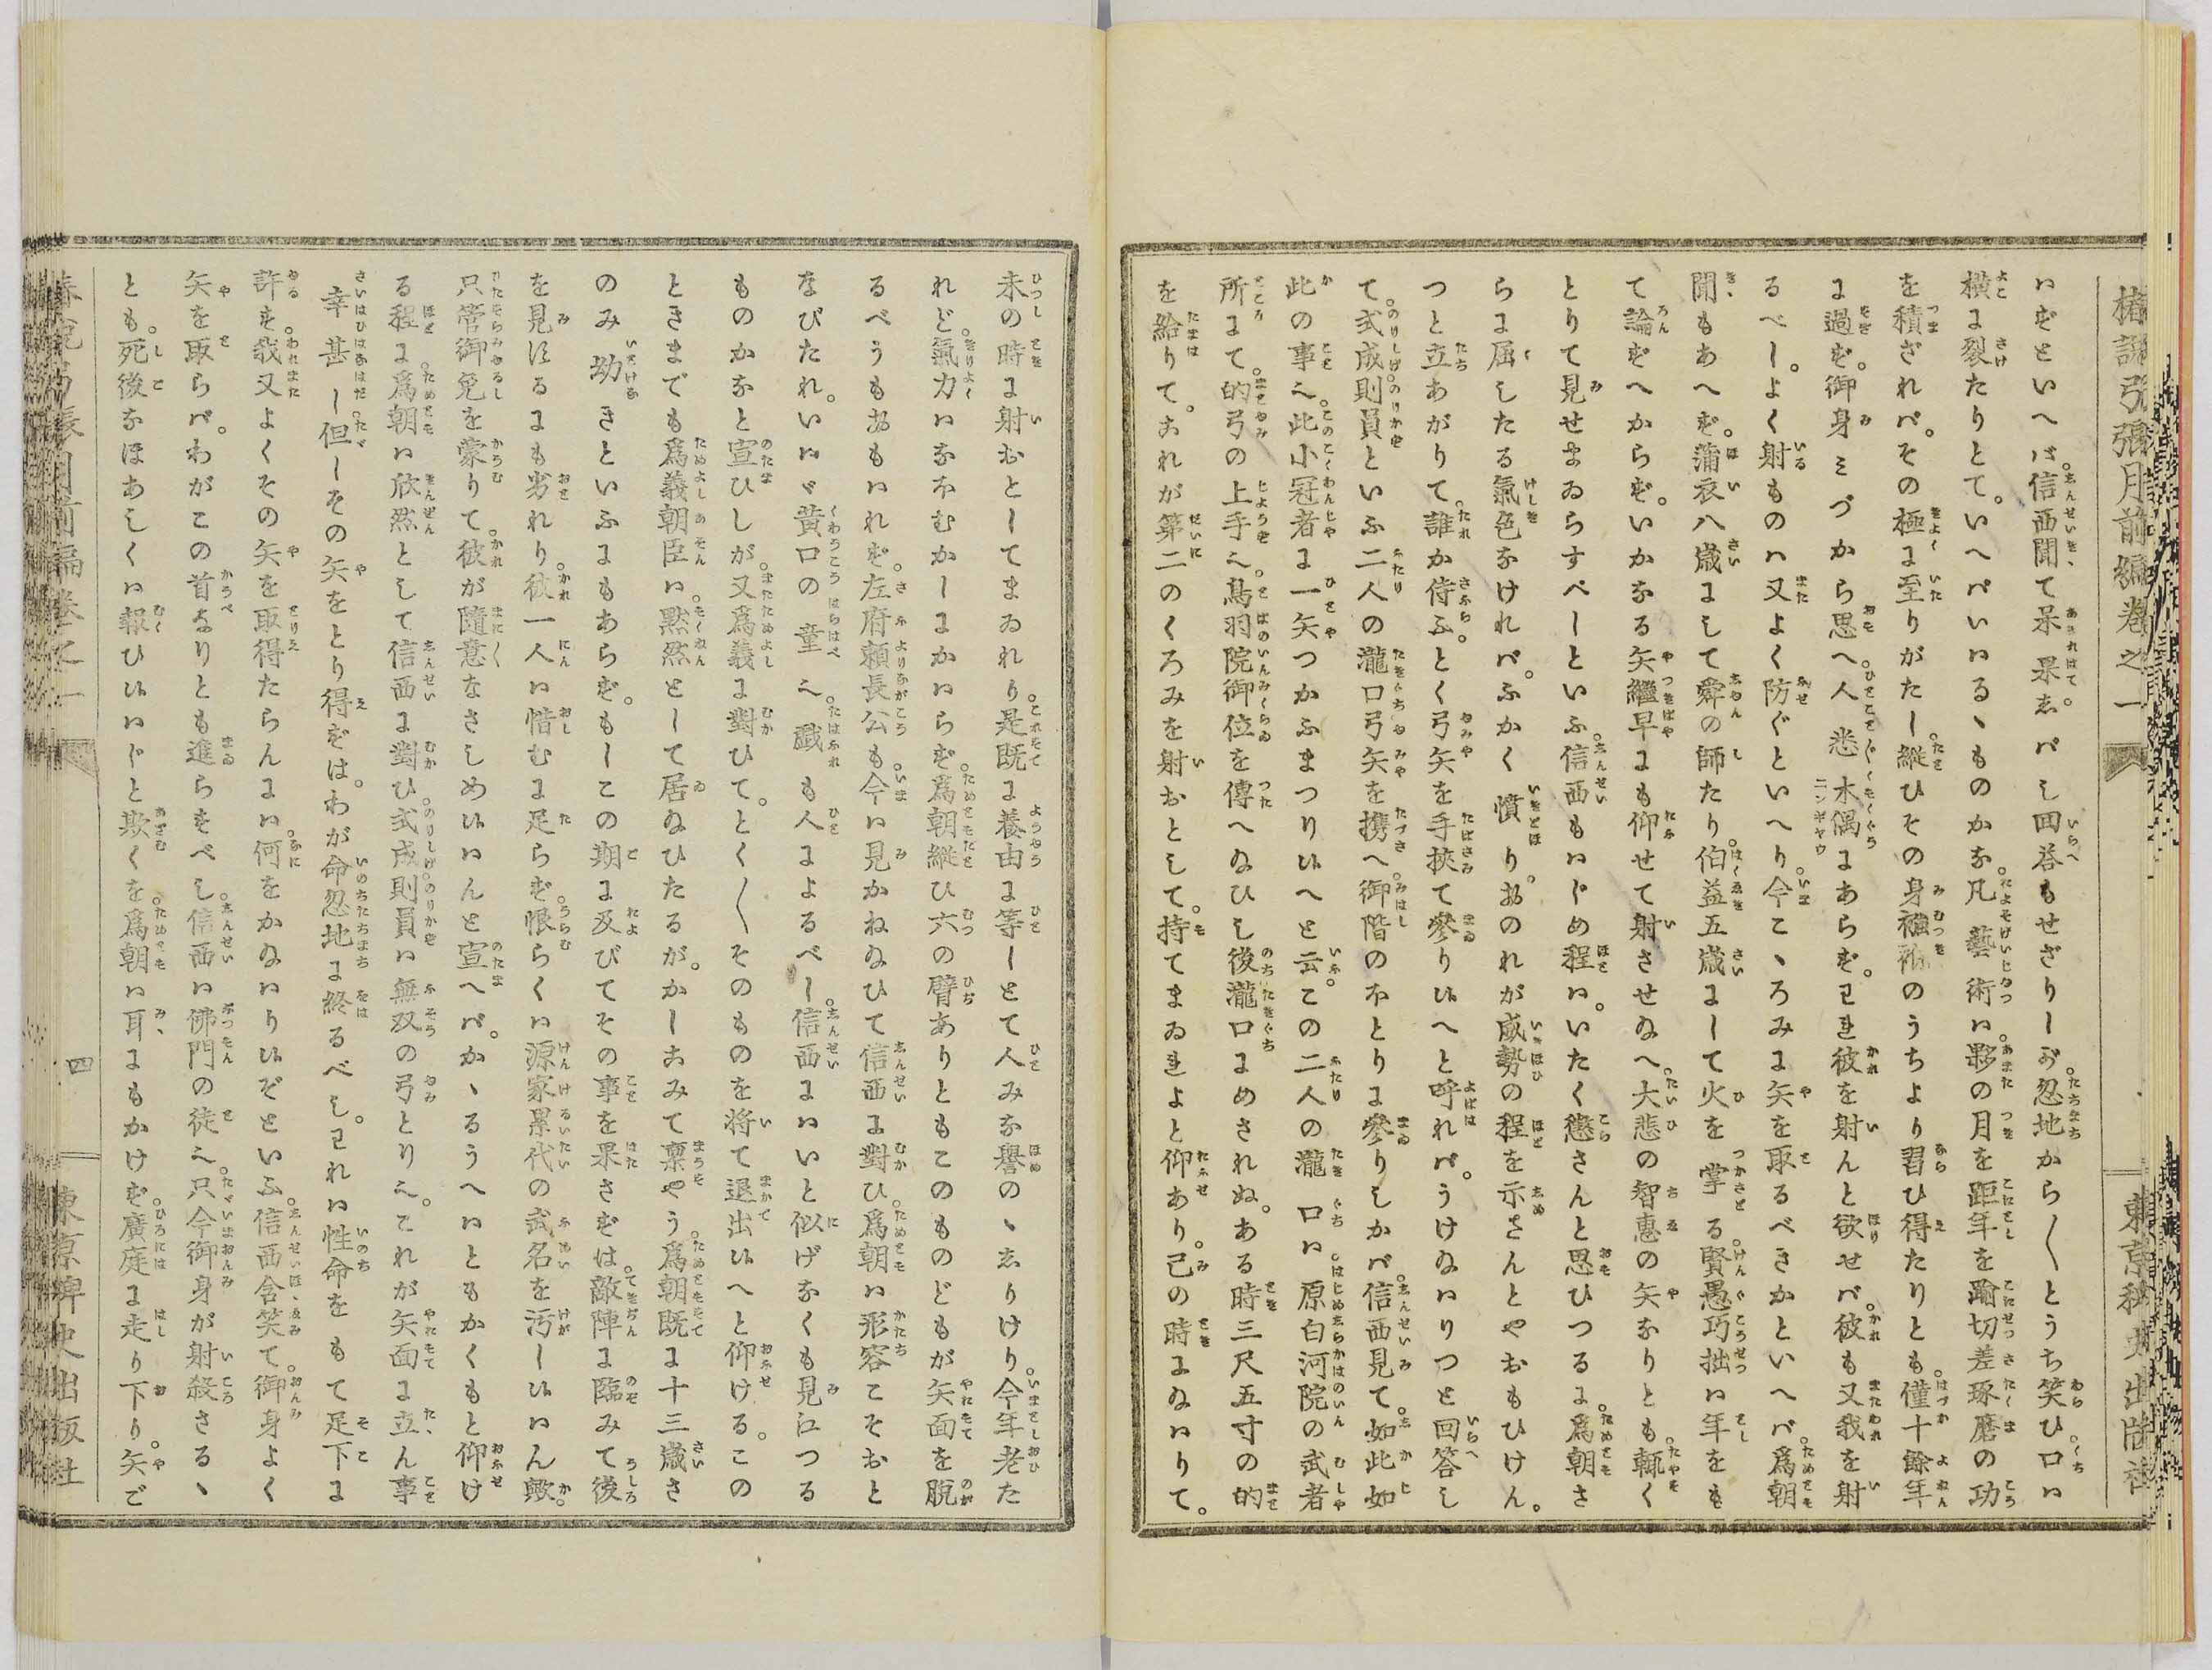 椿説弓張月前編巻之一　東京稗史出版社
いずといへバ。信西聞て呆果しバし回答もせざりしが。忽地から〳〵とうち笑ひ。口ハ
横に裂たりとて。いへバいはるゝものかな。凡藝術ハ。夥の月を距年を踰切差琢磨の功
を積ざれバ。その極に至りがたし。縦ひその身襁褓のうちより習ひ得たりとも。僅十餘年
に過ず。御身みづから思へ。人悉木偶にあらず。われ彼を射んと欲せバ。彼も又我を射
るべし。よく射ものハ又よく防ぐといへり。今こゝろみに矢を取るべきかといへバ。爲朝
聞もあへず。蒲衣八歳にして舜の師たり。伯益五歳にして火を掌る。賢愚巧拙ハ年をも
て論ずべからず。いかなる矢繼早にも仰せて射させ給へ。大悲の智惠の矢なりとも。輙く
とりて見せまゐらすべしといふ。信西もはじめ程ハ。いたく懲さんと思ひつるに。爲朝さ
らに屈したる氣色なけれバ。ふかく憤り。おのれが威勢の程を示さんとやおもひけん。
つと立あがりて。誰か侍ふ。とく弓矢を手挾て參り候へと呼れバ。うけ給ハりつと回答し
て。式成。則員といふ二人の瀧口弓矢を携へ。御階のほとりに參りしかバ。信西見て。如此如
此の事也。此小冠者に一矢つかふまつり候へと云。この二人の瀧口ハ。原白河院の武者
所にて。的弓の上手也。鳥羽院御位を傳へ給ひし後。瀧口にめされぬ。ある時三尺五寸の的
を給りて。これが第二のくろみを射おとして。持てまゐれよと仰あり。己の時に給ハりて。
未の時に射おとしてまゐれり。是既に養由に等しとて人みな譽のゝしりけり。今年老た
れど。氣力ハなほむかしにかハらず。爲朝縦ひ六の臂ありともこのものどもが矢面を脱
るべうもおもはれず。左府頼長公も。今ハ見かね給ひて信西に對ひ。爲朝ハ形容こそおと
なびたれ。いはゞ黄口の童也。戯も人によるべし。信西にハいと似げなくも見江つる
ものかなと宣ひしが。又爲義に對ひて。とく〳〵そのものを將て退出候へと仰ける。この
ときまでも爲義朝臣ハ。黙然として居給ひたるが。かしこみて稟やう。爲朝既に十三歳さ
のみ幼きといふにもあらず。もしこの期に及びてその事を果さずは。敵陣に臨みて後
を見するにも劣れり。彼一人ハ惜むに足らず。恨らくハ源家累代の武名を汚し候ハん歟。
只管御免を蒙りて。彼が隨意なさしめ候ハんと宣へバ。かゝるうへハともかくもと仰け
る程に。爲朝ハ欣然として信西に對ひ。式成。則員ハ無双の弓とり也。これが矢面に立ん事
幸甚し。但しその矢をとり得ずは。わが命忽地に終るべし。われハ性命をもて足下に
許す。我又よくその矢を取得たらんにハ。何をかたまハり候ぞといふ。信西含笑て。御身よく
矢を取らバ。わがこの首なりとも進らすべし。信西ハ佛門の徒也。只今御身が射殺さるゝ
とも。死後なほあしくハ報ひハじと欺くを。爲朝ハ耳にもかけず。廣庭に走り下り。矢ご
椿説弓張月前編巻之一　四　東京稗史出版社